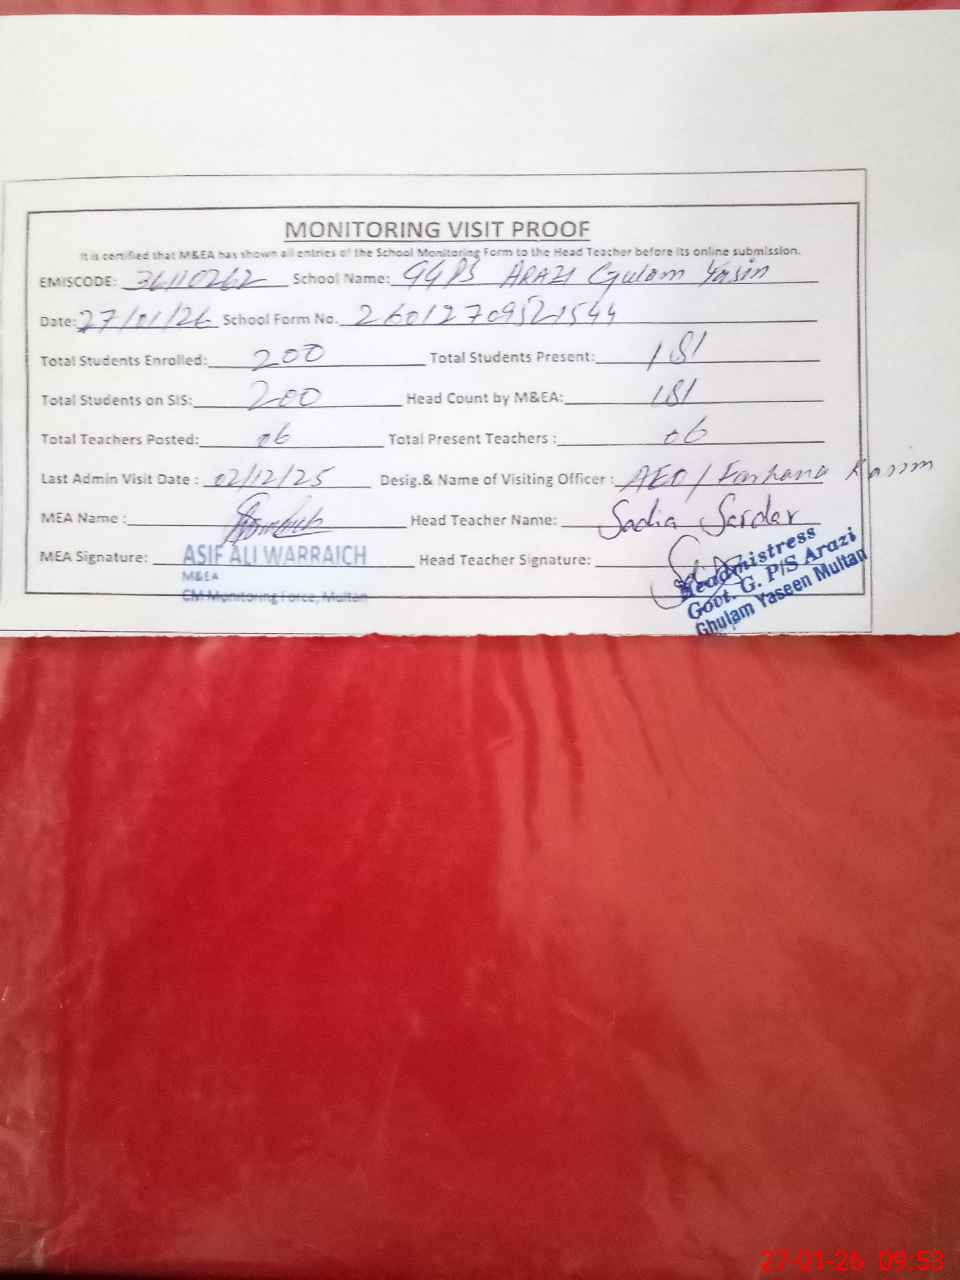 MONITORING VISIT PROOF
It is certified that M&EA has shown all entries of the School Monitoring Form to the Head Teacher before its online submission.
EMISCODE: 36110262 School Name: GGPS ARAZI Gulam Yasin
Date: 27/01/26 School Form No. 26012709521544
Total Students Enrolled: 200 Total Students Present: 181
Total Students on SIS: 200 Head Count by M&EA: 181
Total Teachers Posted: 06 Total Present Teachers : 06
Last Admin Visit Date : 02/12/25 Desig.& Name of Visiting Officer : AEO / Farhana Kasim
MEA Name : Head Teacher Name: Sadia Sardar
MEA Signature: ASIF ALI WARRAICH Head Teacher Signature:
M&EA
CM Monitoring Force, Multan
Headmistress
Govt. G. P/S Arazi
Ghulam Yaseen Multan
27-01-26 09:53